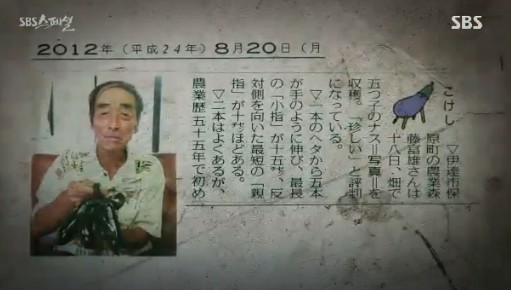 SBS스페셜
SBS
2012年(平成24年)8月20日(月
こけし
▽伊達市保
原町の農業森
藤富雄さんは
十八日、畑で
五つ子のナス=写真=を
収穫。「珍しい」と評判
になっている。
▽一本のヘタから五本
が手のように伸び、最長
の「小指」が十五㌢、反
対側を向いた最短の「親
指」が十㌢ほどある。
▽二本はよくあるが、
農業歴五十五年で初め